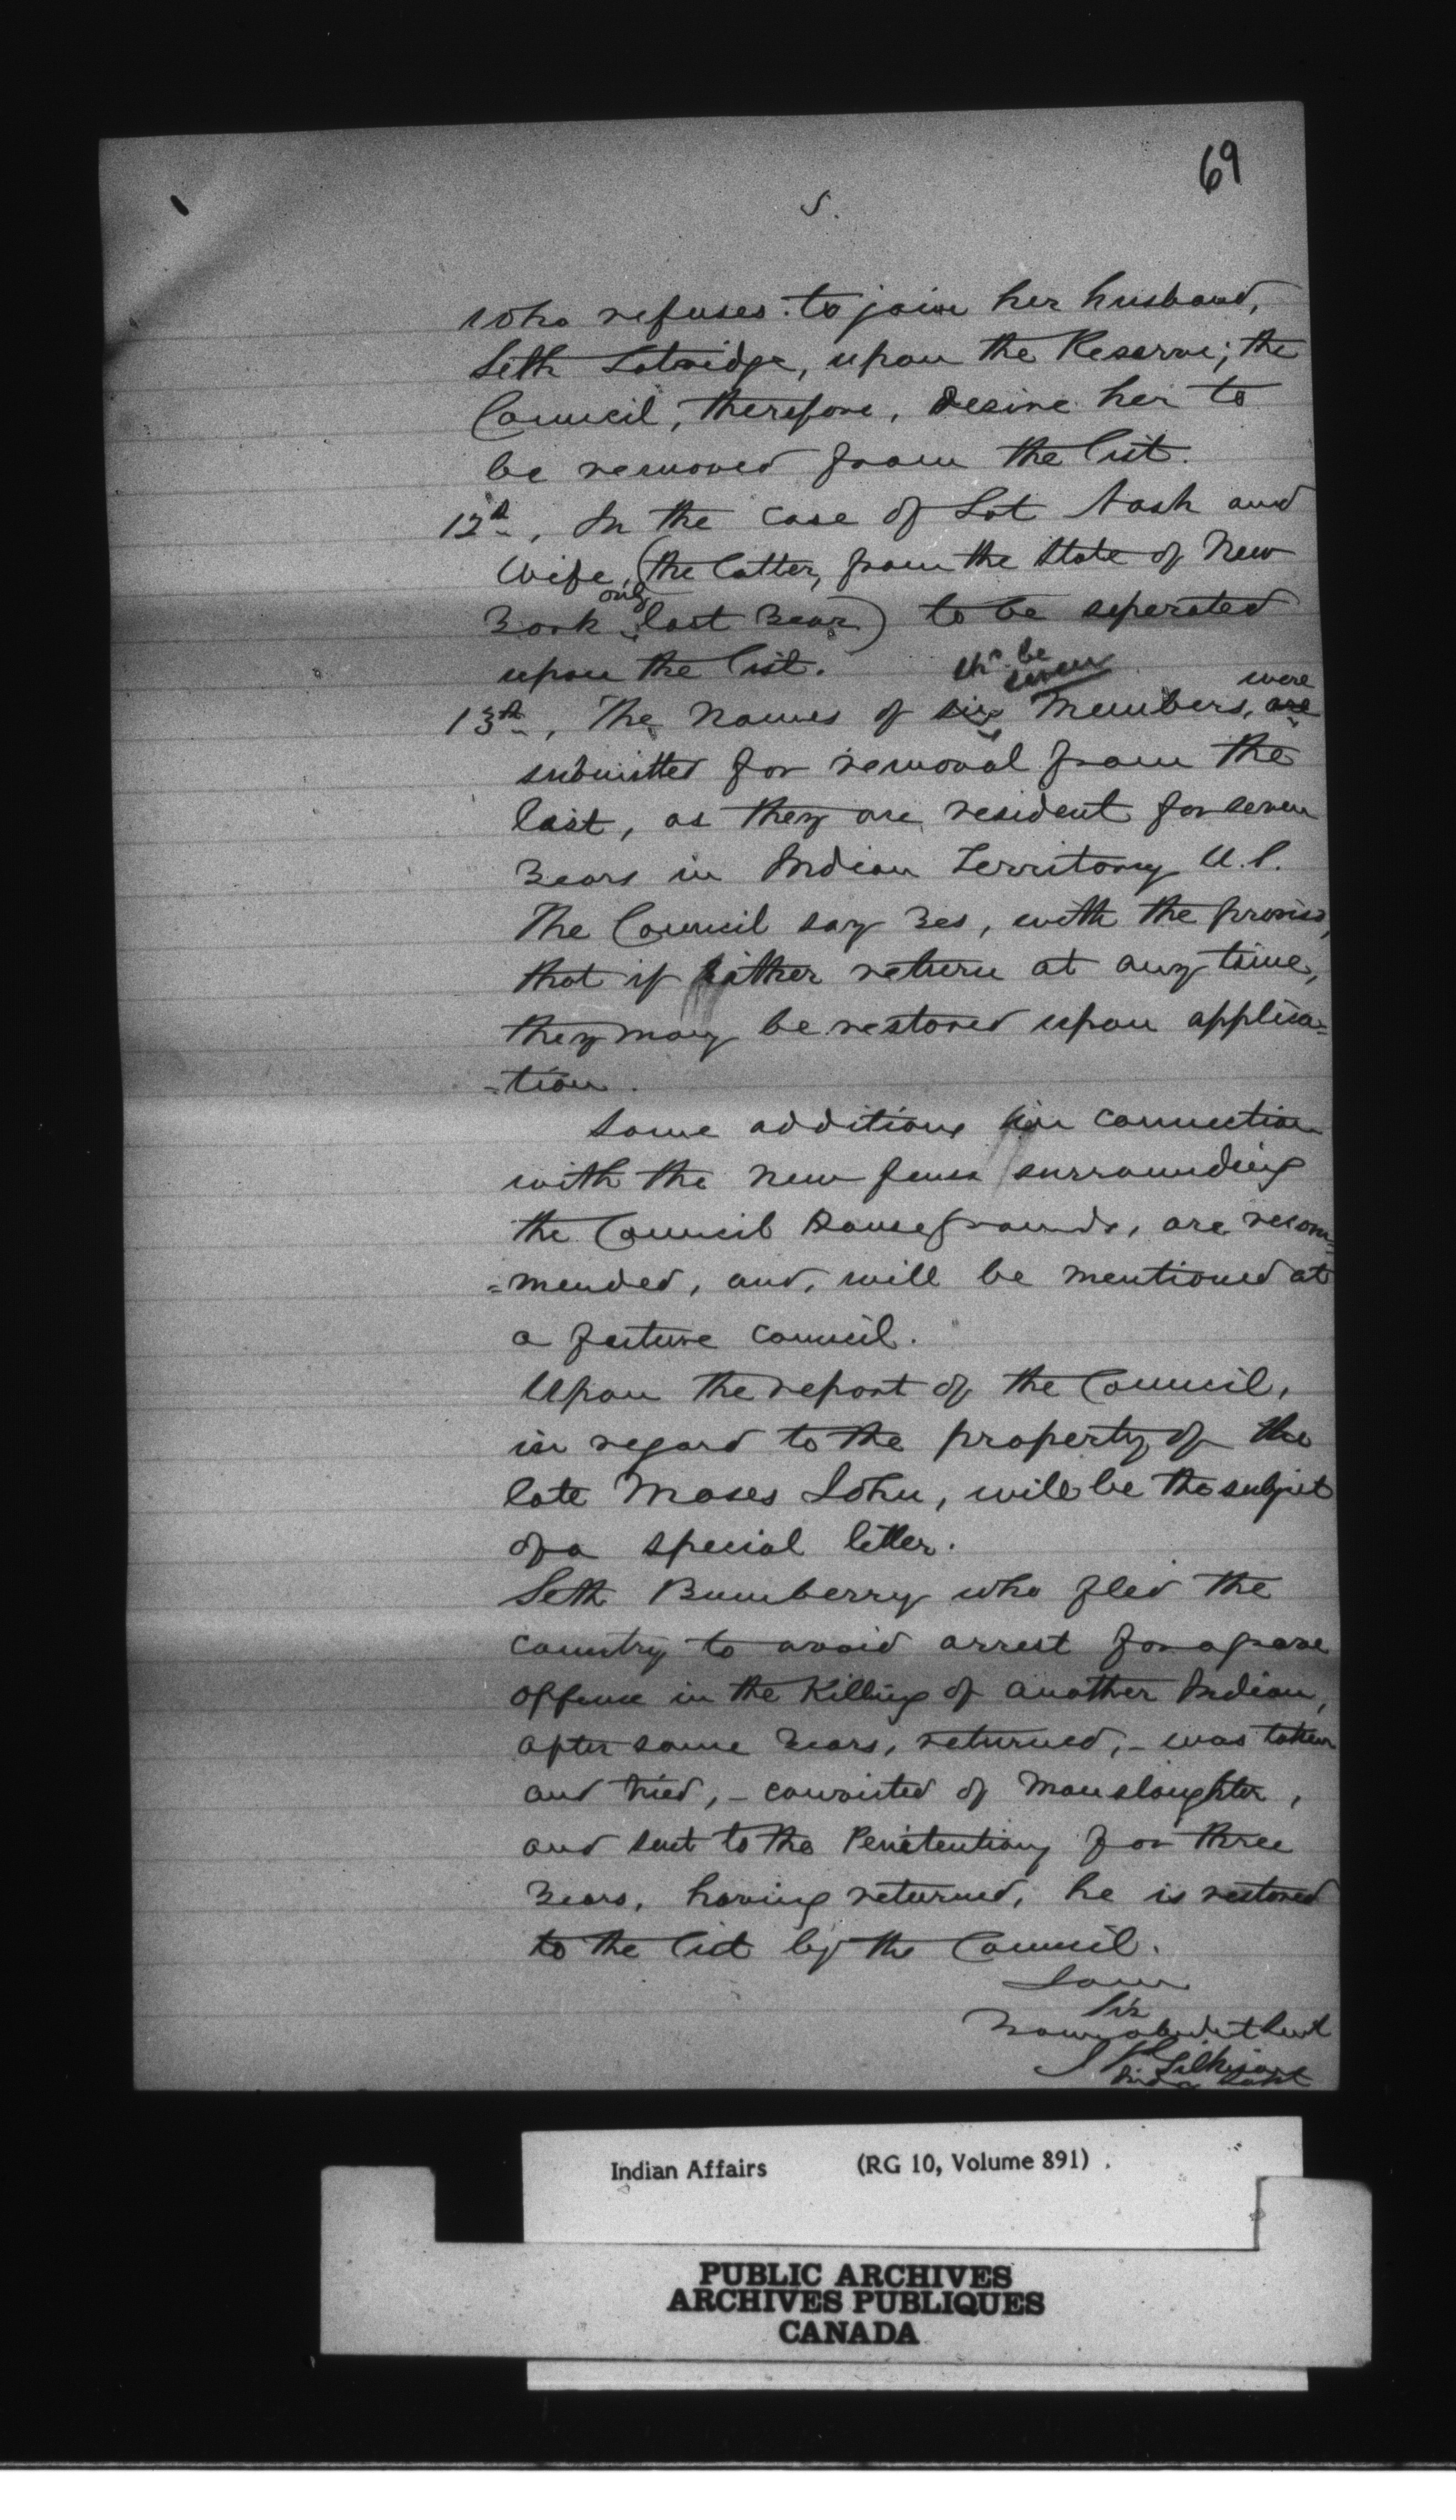 69
5.
who refuses to join her husband,
Seth Lotridge, upon the Reserve; the
Council, therefore, desire her to
be removed from the list.
12th, In the case of Lot Nash and
Wife, (the latter, from the State of New
York only last Year) to be seperated
upon the list.
sh'd be seven
13th, The names of six Members, are were
submitted for removal from the
list, as they are resident for seven
Years in Indian Territory U.S.
The Council say Yes, with the proviso,
that if either return at any time,
they may be restored upon applica=
=tion.
Some additions in connection
with the new fence surrounding
the Council House grounds, are recom=
=mended, and, will be mentioned at
a future council.
Upon the report of the Council,
in regard to the property of the
late Moses John, will be the subject
of a special letter.
Seth Bumberry who fled the
country to avoid arrest for a grave
offence in the Killing of another Indian,
after some Years, returned, - was taken
and tried, - convicted of Manslaughter,
and sent to the Penitentiary for three
Years, having returned, he is restored
to the list by the Council.
I am
Sir
Your obedient Servt
J T Gilkison
Indian Affairs (RG 10, Volume 891)
PUBLIC ARCHIVES
ARCHIVES PUBLIQUES
CANADA